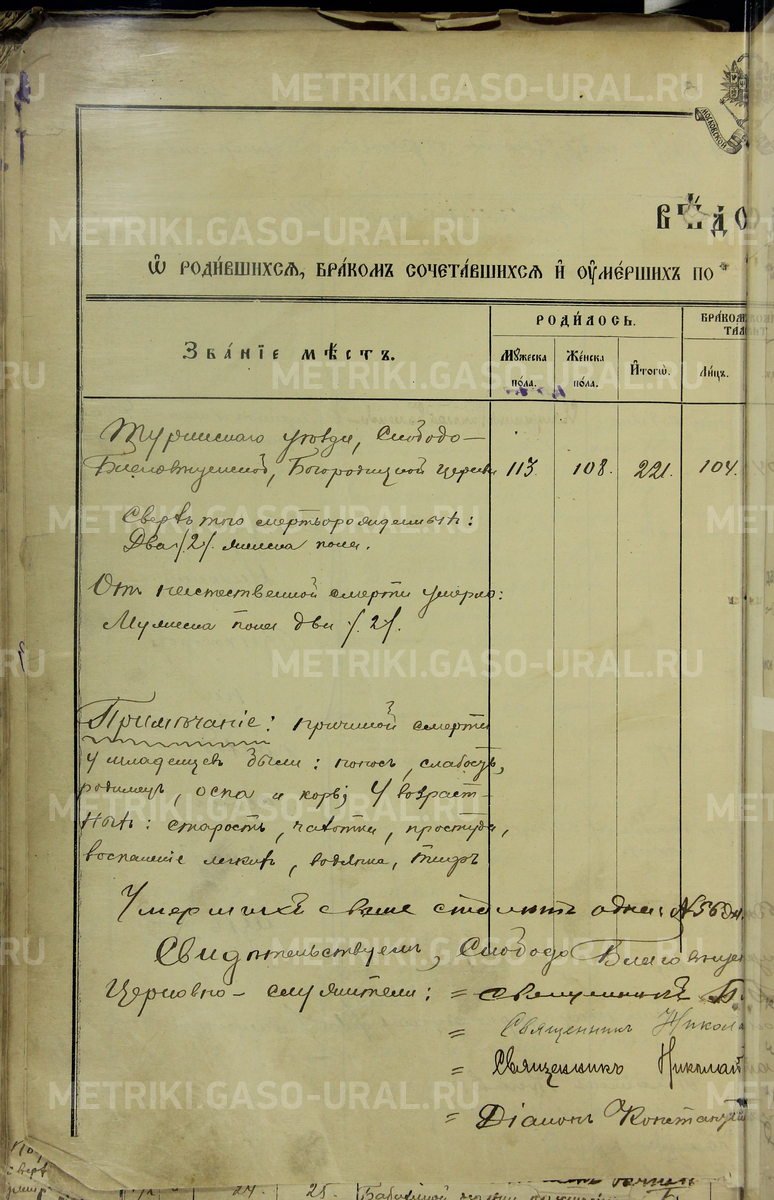 МОСКОВСКОЙ
ВѢДО
Ѿ РОДИ́ВШИХСѦ, БРА́КОМЪ СОЧЕТА́ВШИХСѦ И҆ ОУ҆МЕ́РШИХЪ ПО
ЗВА́НІЕ МѢ́СТЪ.
РОДИ́ЛОСЬ.
БРА́КОМ
Мꙋ́жеска по́ла.
Же́нска по́ла.
И҆тогѡ̀.
Ли́цъ.
Туринскаго уѣзда, Слободо-
Благовѣщенской, Богородицкой церкви 113. 108. 221. 104.
Сверхъ того мертворожденныхъ:
Два /2/ женска пола.
Отъ неестественной смерти умерло:
Мужеска пола два /2/.
Примѣчаніе: причиной смерти
у младенцевъ были: поносъ, слабость,
родимецъ, оспа и корь; у возраст-
ныхъ: старость, чахотка, простуда,
воспаленіе легкихъ, водянка, тифъ
Умершихъ свыше ста лѣтъ одна: №56
Свидѣтельствуемъ, Слободо Благовѣщен
Церковно-служители: = священникъ
= Священникъ Никол
= Священникъ Николай
= Діаконъ Константи
24 25
METRIKI.GASO-URAL.RU